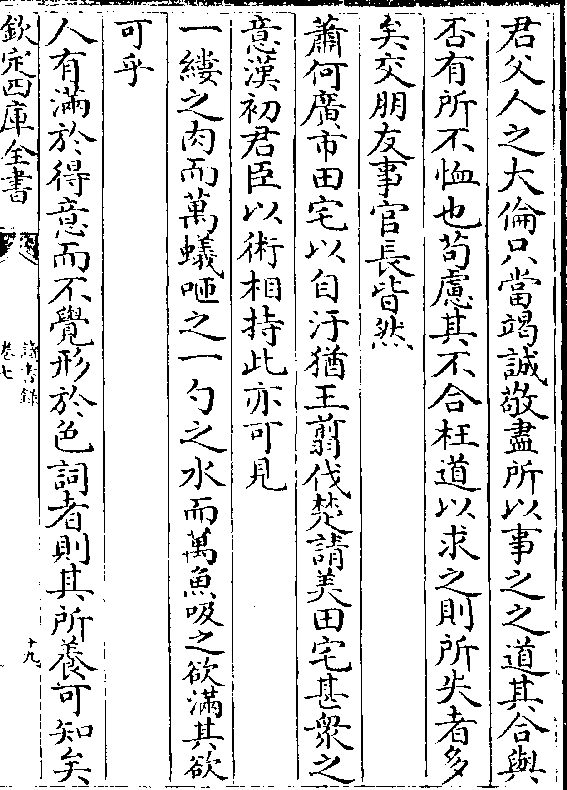 君父人之大倫只當竭誠敬盡所以事之之道其合與
否有所不恤也苟慮其不合枉道以求之則所失者多
矣交朋友事官長皆然
蕭何廣市田宅以自汙猶王翦伐楚請美田宅甚衆之
意漢初君臣以術相持此亦可見
一縷之肉而萬蟻咂之一勺之水而萬魚吸之欲滿其欲
可乎
人有滿於得意而不覺形於色詞者則其所養可知矣
欽定四庫全書
讀書録
卷七
十九